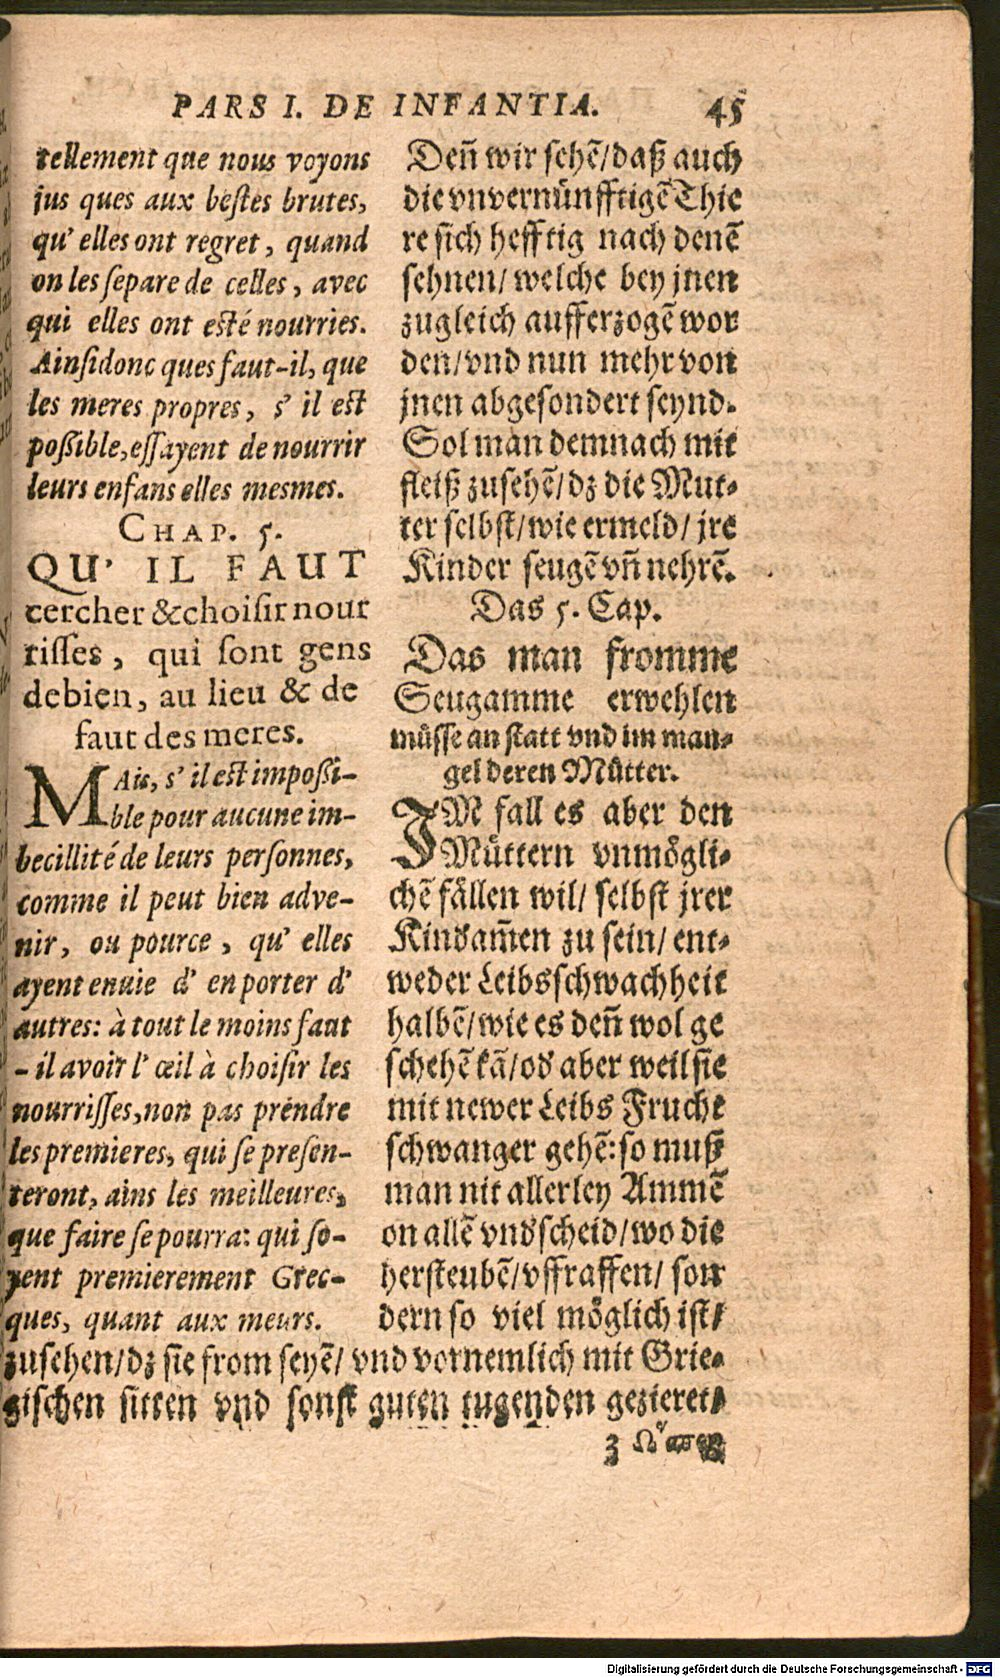 PARS I. DE INFANTIA. 45
tellement que nous voyons
jus ques aux bestes brutes,
qu' elles ont regret, quand
on les separe de celles, avec
qui elles ont esté nourries.
Ainsi donc ques faut-il, que
les meres propres, s' il est
possible, essayent de nourrir
leurs enfans elles mesmes.
CHAP. 5.
QU' IL FAUT
cercher & choisir nour
risses, qui sont gens
de bien, au lieu & de
faut des meres.
MAis, s' il est impossi-
ble pour aucune im-
becillité de leurs personnes,
comme il peut bien adve-
nir, ou pource, qu' elles
ayent enuie d' en porter d'
autres: à tout le moins faut
- il avoir l' œil à choisir les
nourrisses, non pas prendre
les premieres, qui se presen-
teront, ains les meilleures,
que faire se pourra: qui so-
yent premierement Grec-
ques, quant aux meurs.
Deñ wir sehẽ/ daß auch
die vnvernünfftigẽ Thie
re sich hefftig nach denẽ
sehnen/ welche bey jnen
zugleich aufferzogẽ wor
den/ vnd nun mehr von
jnen abgesondert seynd.
Sol man demnach mit
fleiß zusehẽ/ dz die Mut-
ter selbst/ wie ermeld/ jre
Kinder seugẽ vñ nehrẽ.
Das 5. Cap.
Das man fromme
Seugamme erwehlen
müsse an statt vnd im man-
gel deren Mütter.
IM fall es aber den
Müttern vnmögli-
chẽ fällen wil/ selbst jrer
Kindam̃en zu sein/ ent-
weder Leibsschwachheit
halbẽ/ wie es deñ wol ge
schehẽ kã/ od' aber weil sie
mit newer Leibs Frucht
schwanger gehẽ: so muß
man nit allerley Ammẽ
on allẽ vnd'scheid/ wo die
hersteubẽ/ vffraffen/ son
dern so viel möglich ist/
zusehen/ dz sie from seyẽ/ vnd vornemlich mit Grie-
gischen sitten vnd sonst guten tugenden gezieret/
Digitalisierung gefördert durch die Deutsche Forschungsgemeinschaft - DFG